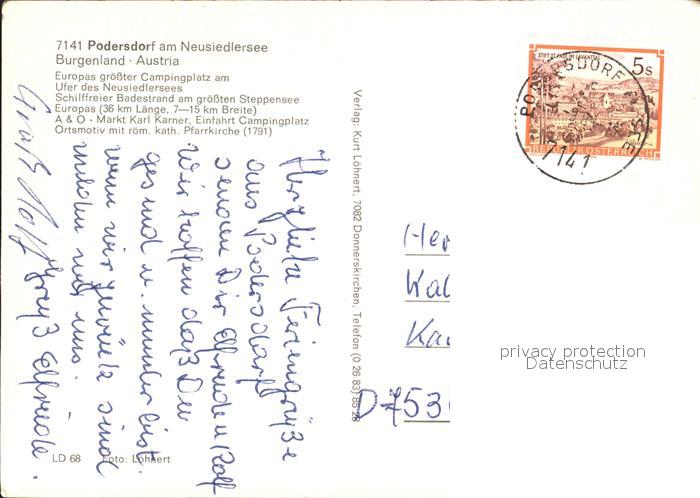 7141 Podersdorf am Neusiedlersee
Burgenland · Austria
Europas größter Campingplatz am
Ufer des Neusiedlersees
Schilffreier Badestrand am größten Steppensee
Europas (36 km Länge, 7—15 km Breite)
A & O - Markt Karl Karner, Einfahrt Campingplatz
Ortsmotiv mit röm. kath. Pfarrkirche (1791)
Herzliche Feriengrüße
aus Podersdorf
senden Dir Elfriede u Rolf
Wir hoffen daß Du
gesund u. munter bist.
wenn wir zurück sind
melden wir uns.
Gruß Elfriede.
Gruß Rolf
LD 68 Foto: Löhnert
Verlag: Kurt Löhnert, 7082 Donnerskirchen, Telefon (0 26 83) 85 28
STIFT ST. PAUL IM LAVANTTAL
5s
REPUBLIK ÖSTERREICH
PODERSDORF
SEE
7141
Her
Kal
Ka
D-753
privacy protection
Datenschutz